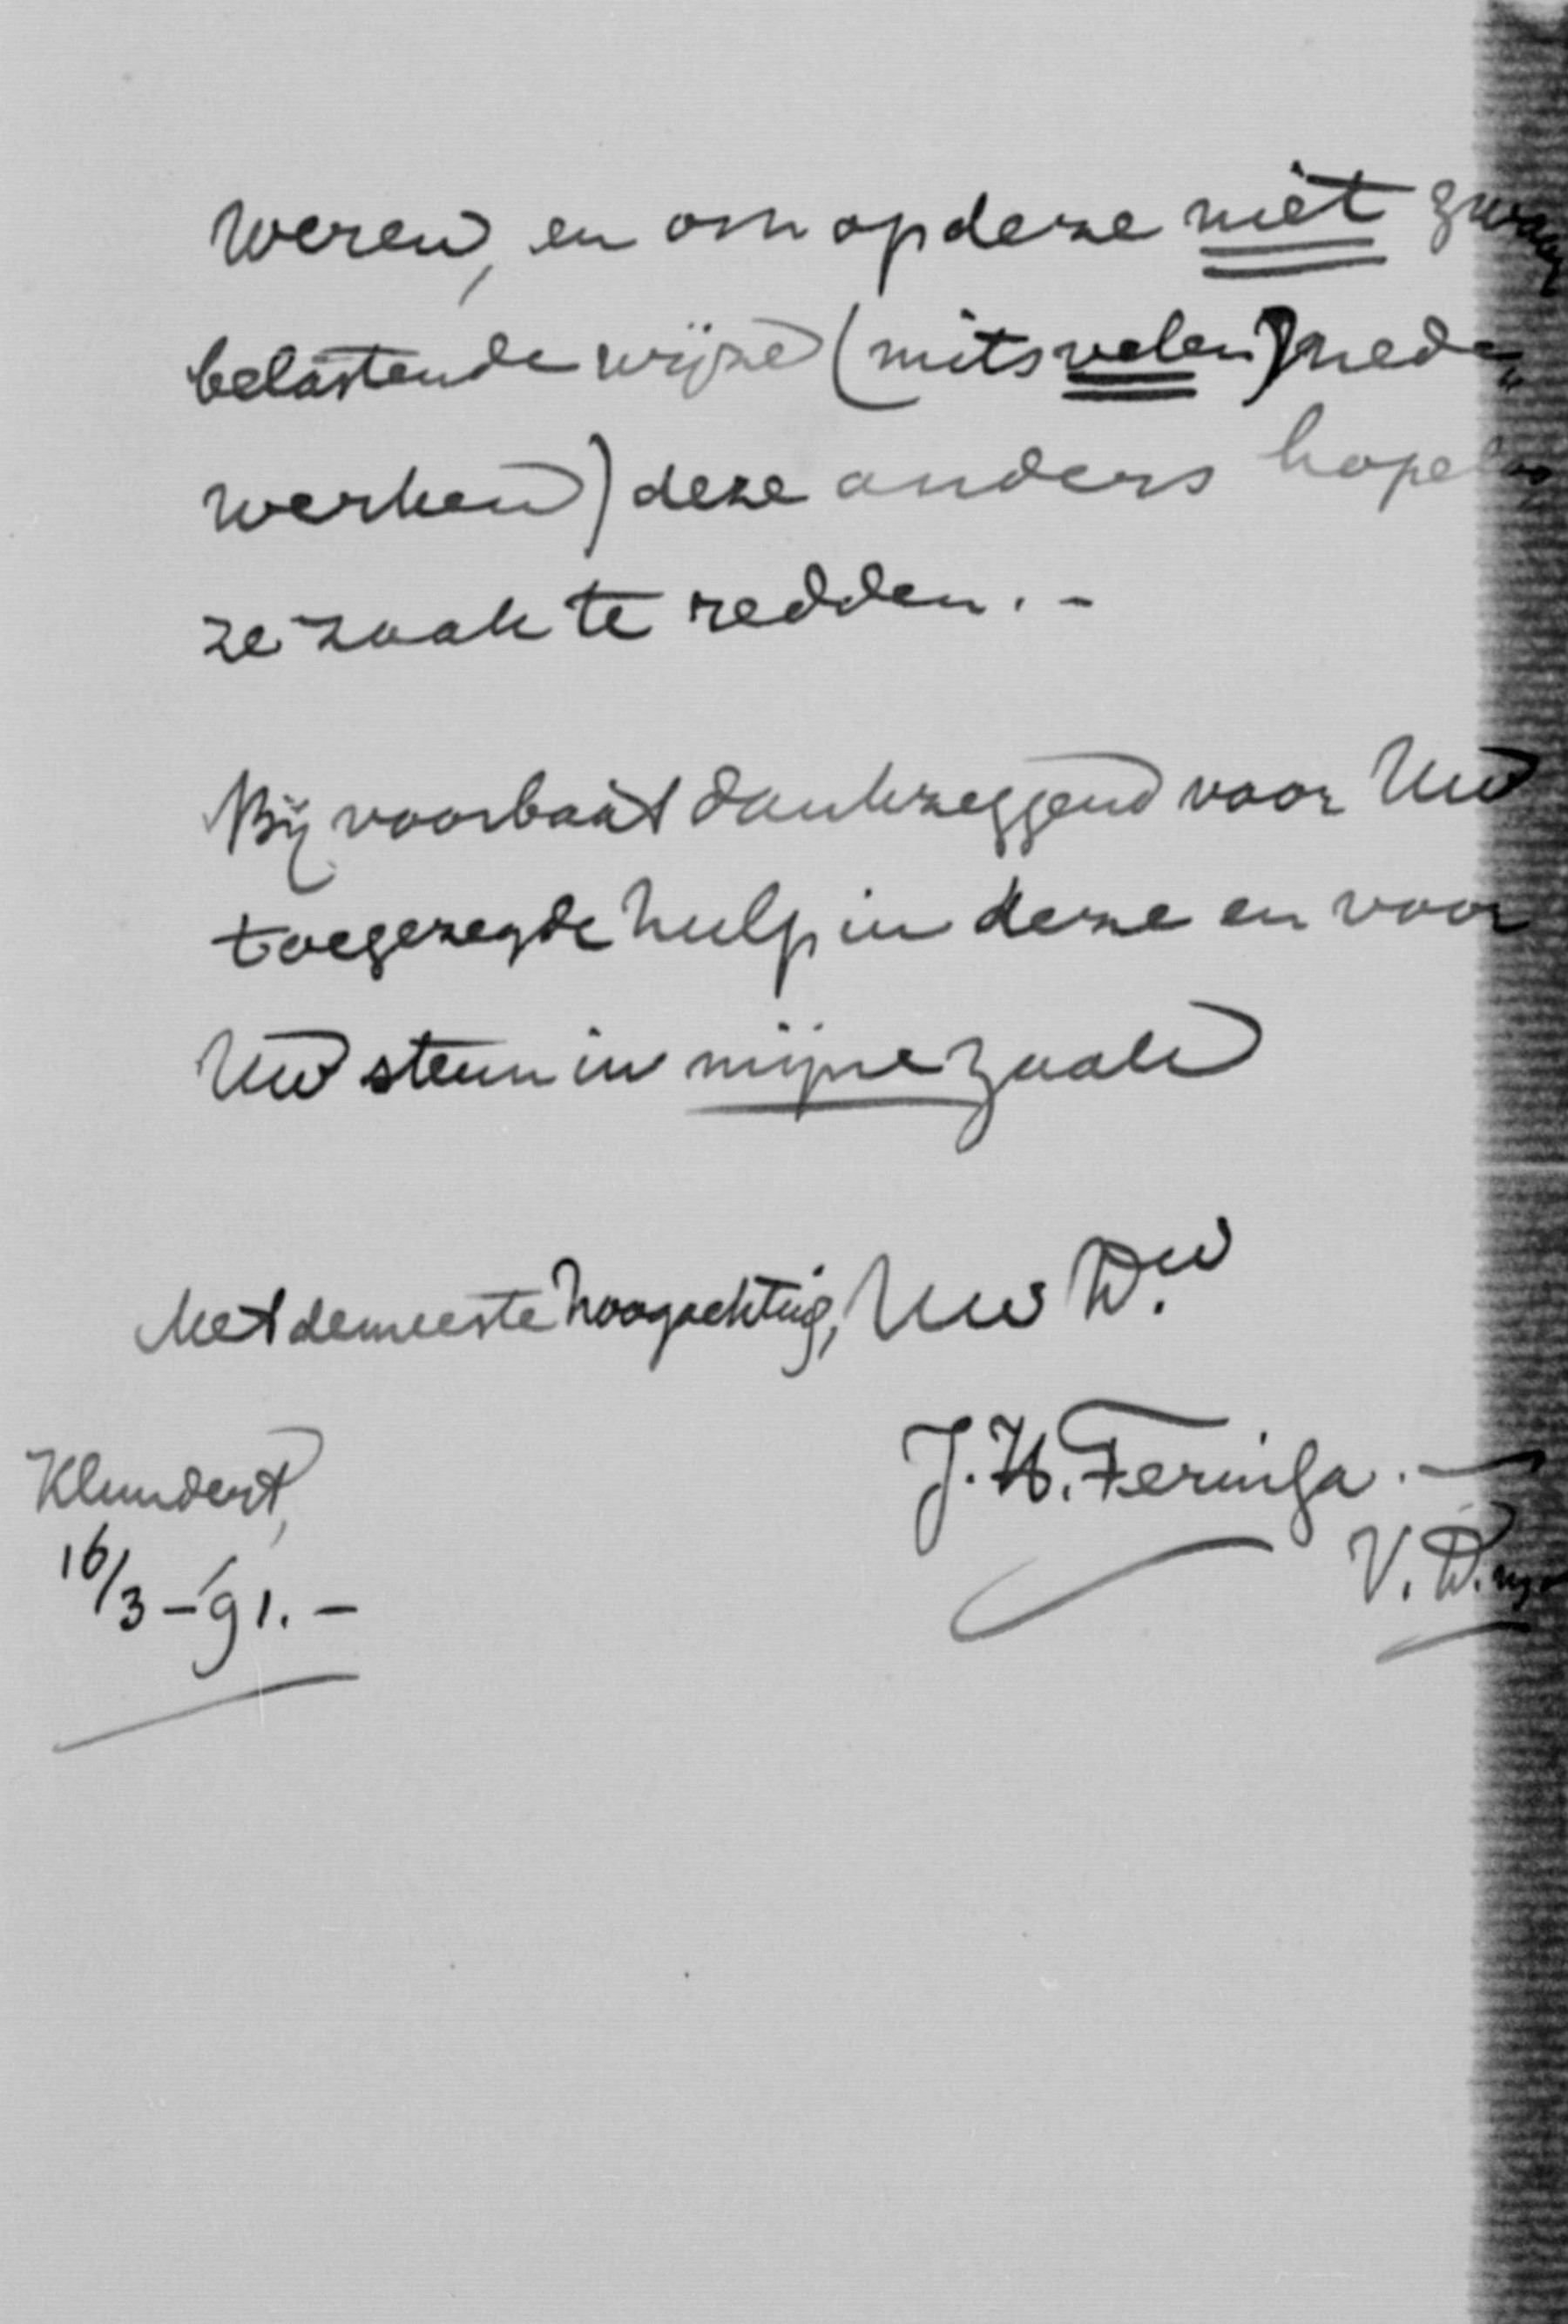 weren, en om op deze niet zwaar
belastende wijze (mits velen mede-
werken) deze anders hopeloo-
ze zaak te redden. -
Bij voorbaat dankzeggend voor Uw
toegezegde hulp in deze en voor
Uw steun in mijne zaak
Met de meeste hoogachting, Uw Dw.
J. H. Feringa. -
V. D. M.
Klundert,
16/3 - '91. -